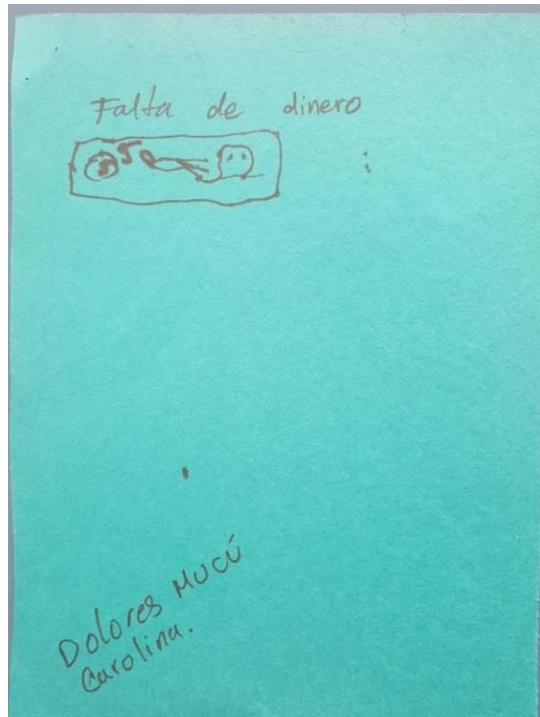 Falta de dinero
Dolores Mucú
Carolina.